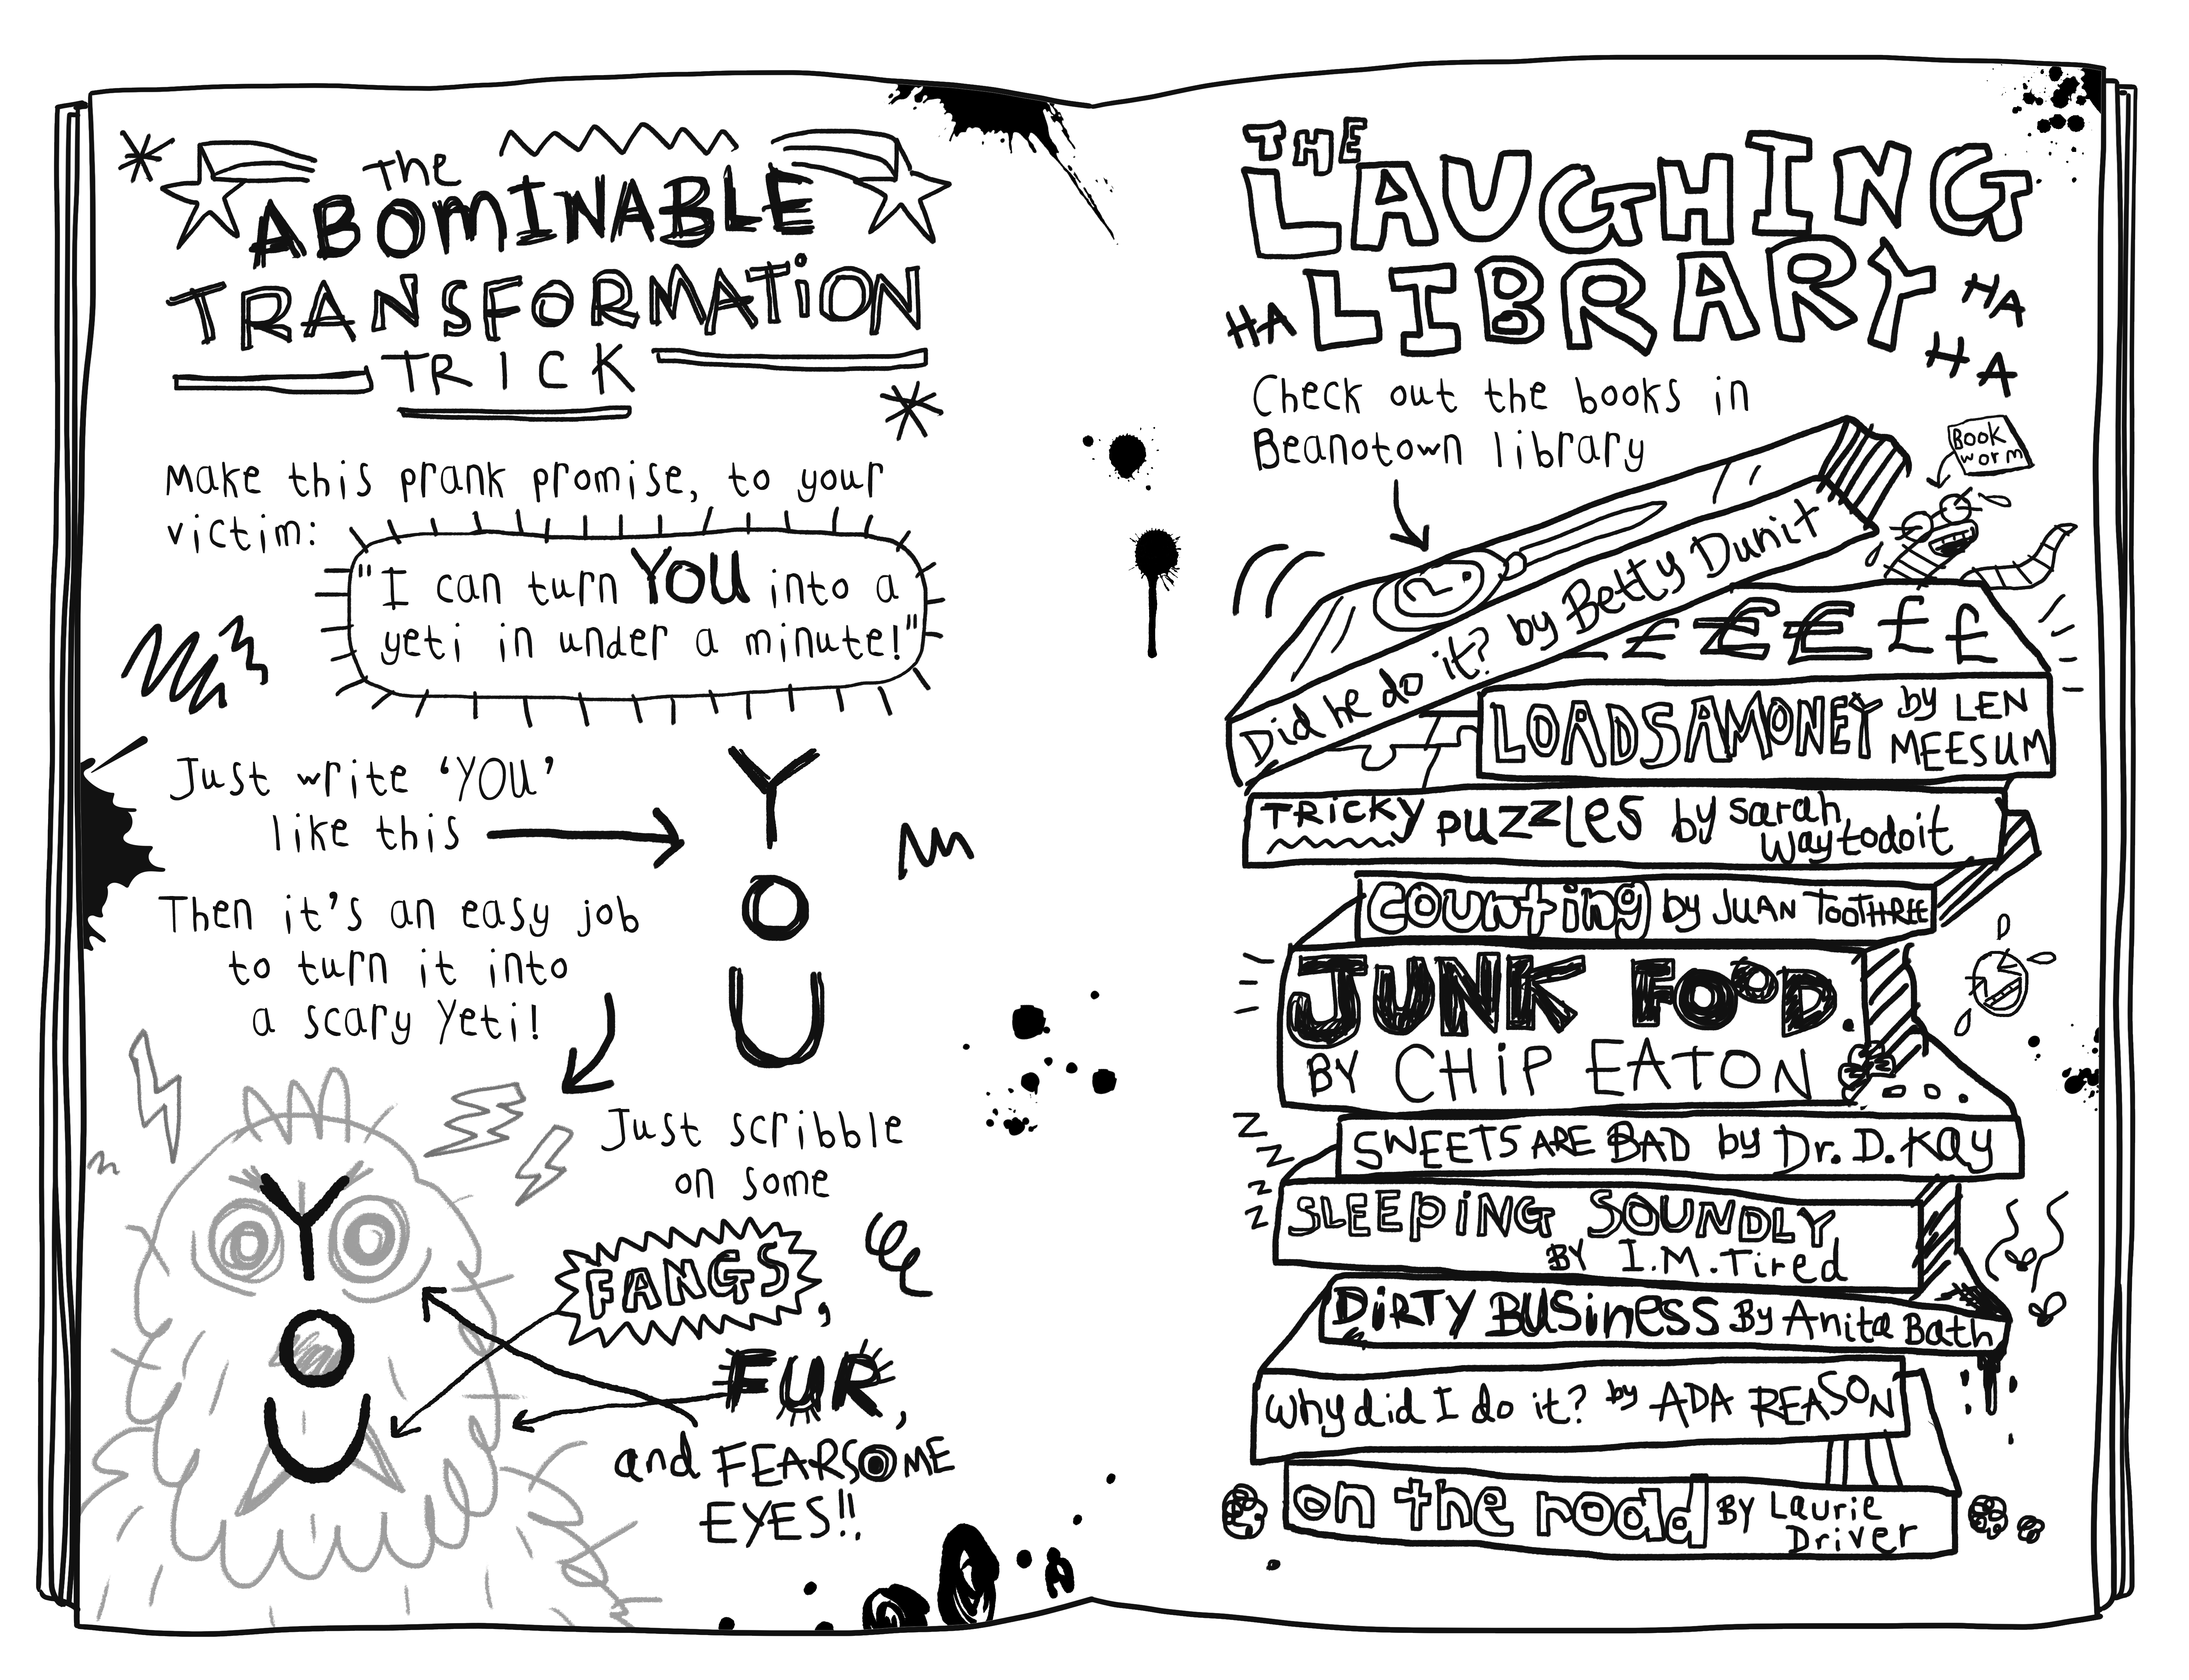 The
ABOMINABLE
TRANSFORMATION
TRICK
Make this prank promise, to your
victim:
"I can turn YOU into a
yeti in under a minute!"
Just write 'YOU'
like this
Y
O
U
Then it's an easy job
to turn it into
a scary Yeti!
Just scribble
on some
FANGS,
FUR,
and FEARSOME
EYES!!
Y
O
U
THE
LAUGHING
LIBRARY
HA
HA
HA
Check out the books in
Beanotown library
Book
worm
?
Did he do it? by Betty Dunit
£ £ £ £ £
LOADSAMONEY by LEN
MEESUM
TRICKY puzzles by Sarah
Waytodoit
Counting by JUAN TOOTHREE
JUNK FOOD
BY CHIP EATON
SWEETS ARE BAD by Dr. D. Kay
Z
Z
Z
Z
SLEEPING SOUNDLY
BY I.M. Tired
DIRTY BUSINESS By Anita Bath
Why did I do it? by ADA REASON
on the road BY Laurie
Driver